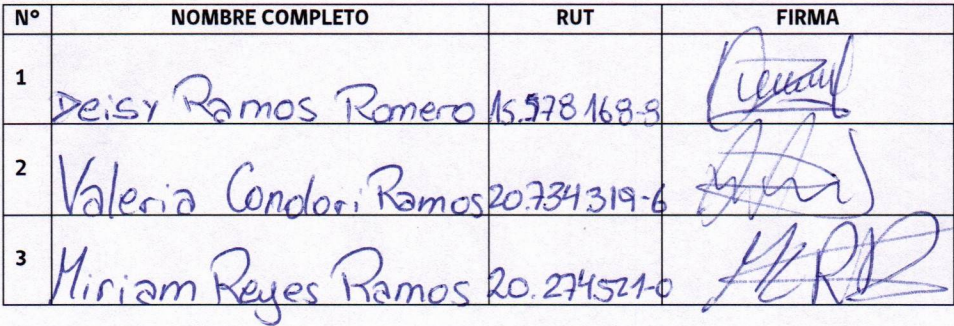 Nº NOMBRE COMPLETO RUT FIRMA
1 Deisy Ramos Romero 15.978.168-8
2 Valeria Condori Ramos 20.734.319-6
3 Miriam Reyes Ramos 20.274521-0